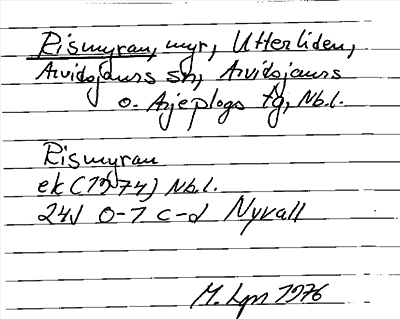 Rismyran, myr, Utterliden,
Arvidsjaurs sn, Arvidsjaurs
o. Arjeplogs tg, Nb.l.
Rismyran
ek (1974) Nb.l.
24J 0-1 c-d Nyvall
M. Lpn 1976